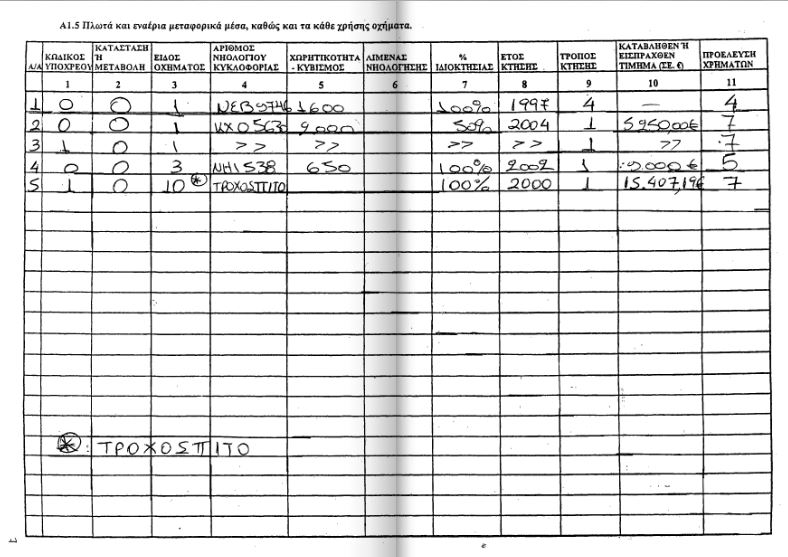 Α1.5 Πλωτά και εναέρια μεταφορικά μέσα, καθώς και τα κάθε χρήσης οχήματα.
Α/Α ΚΩΔΙΚΟΣ ΥΠΟΧΡΕΟΥ ΚΑΤΑΣΤΑΣΗ Ή ΜΕΤΑΒΟΛΗ ΕΙΔΟΣ ΟΧΗΜΑΤΟΣ ΑΡΙΘΜΟΣ ΝΗΟΛΟΓΙΟΥ ΚΥΚΛΟΦΟΡΙΑΣ ΧΩΡΗΤΙΚΟΤΗΤΑ - ΚΥΒΙΣΜΟΣ ΛΙΜΕΝΑΣ ΝΗΟΛΟΓΗΣΗΣ % ΙΔΙΟΚΤΗΣΙΑΣ ΕΤΟΣ ΚΤΗΣΗΣ ΤΡΟΠΟΣ ΚΤΗΣΗΣ ΚΑΤΑΒΛΗΘΕΝ Ή ΕΙΣΠΡΑΧΘΕΝ ΤΙΜΗΜΑ (ΣΕ. €) ΠΡΟΕΛΕΥΣΗ ΧΡΗΜΑΤΩΝ
1 2 3 4 5 6 7 8 9 10 11
1 0 0 1 1600 100% 1997 4 — 4
2 0 0 1 2.000 50% 2004 1 7
3 1 0 1 >> >> >> >> 1 >> 7
4 0 0 3 ΝΗ1538 650 100% 2002 1 5
5 1 0 10 * ΤΡΟΧΟΣΠΙΤΟ 100% 2000 1 15.407,19€ 7
* : ΤΡΟΧΟΣΠΙΤΟ